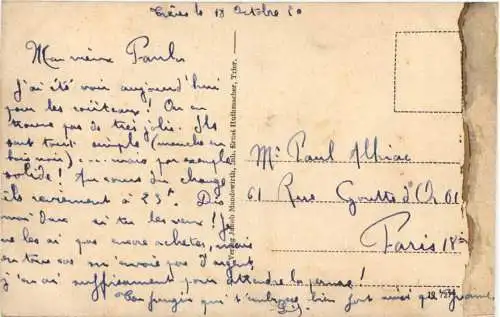 Trèves le 18 Octobre 30
Mon vieux Paul
J'ai été voir aujourd'hui
pour les couteaux! On en
trouve pas de très jolis. Ils
sont tout simple (manche en
bois noir).... mais par exemple
solide! Au cours du change
ils reviennent à 23f. Dis
moi donc si tu les veux! Je
ne les ai pas encore achetés, mais
en tous cas m'envoie pas d'argent,
j'en ai suffisamment pour attendre la
Ton frangin qui t'embrasse bien fort ainsi que
Verlag Jakob Mandewirth, Inh. Ernst Huthmacher, Trier.
Mr Paul
61 Rue Goutte d'Or 61
Paris 18